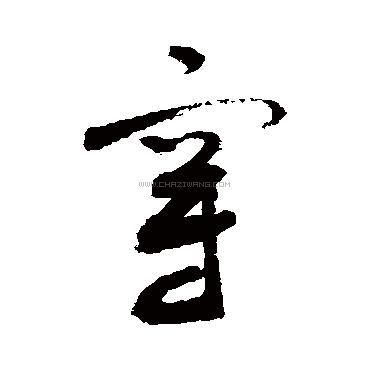 穿
WWW.CHAZIWANG.COM